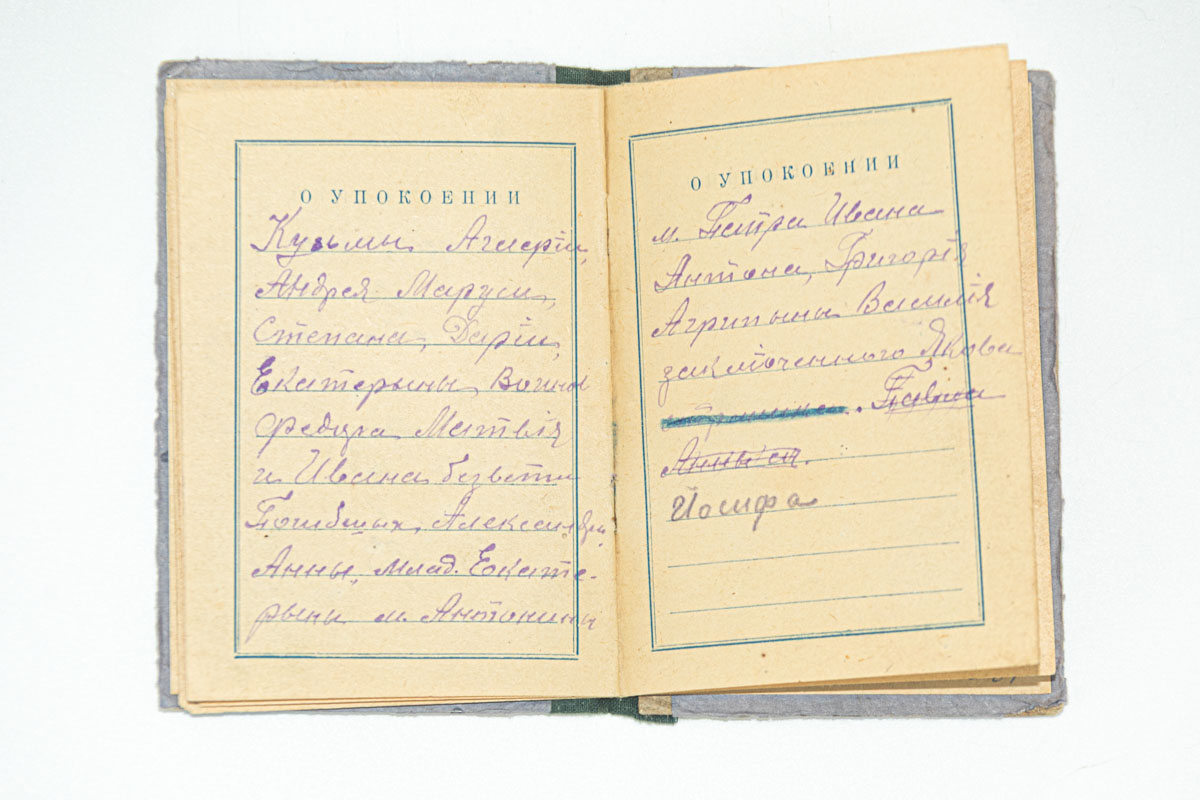 О УПОКОЕНИИ
Кузьмы, Агперiи,
Андрея Маруси,
Степана, Дарiи,
Екатерыны, Воина
Федора Матвiя
и Ивана безвети
Погибшых, Александры,
Анны, млад. Екате-
рыны м. Антонины
О УПОКОЕНИИ
м. Петра Ивана
Антона, Григорiя
Агрипыны Василiя
заключенного Якова
Павла
Анны
Иосифа